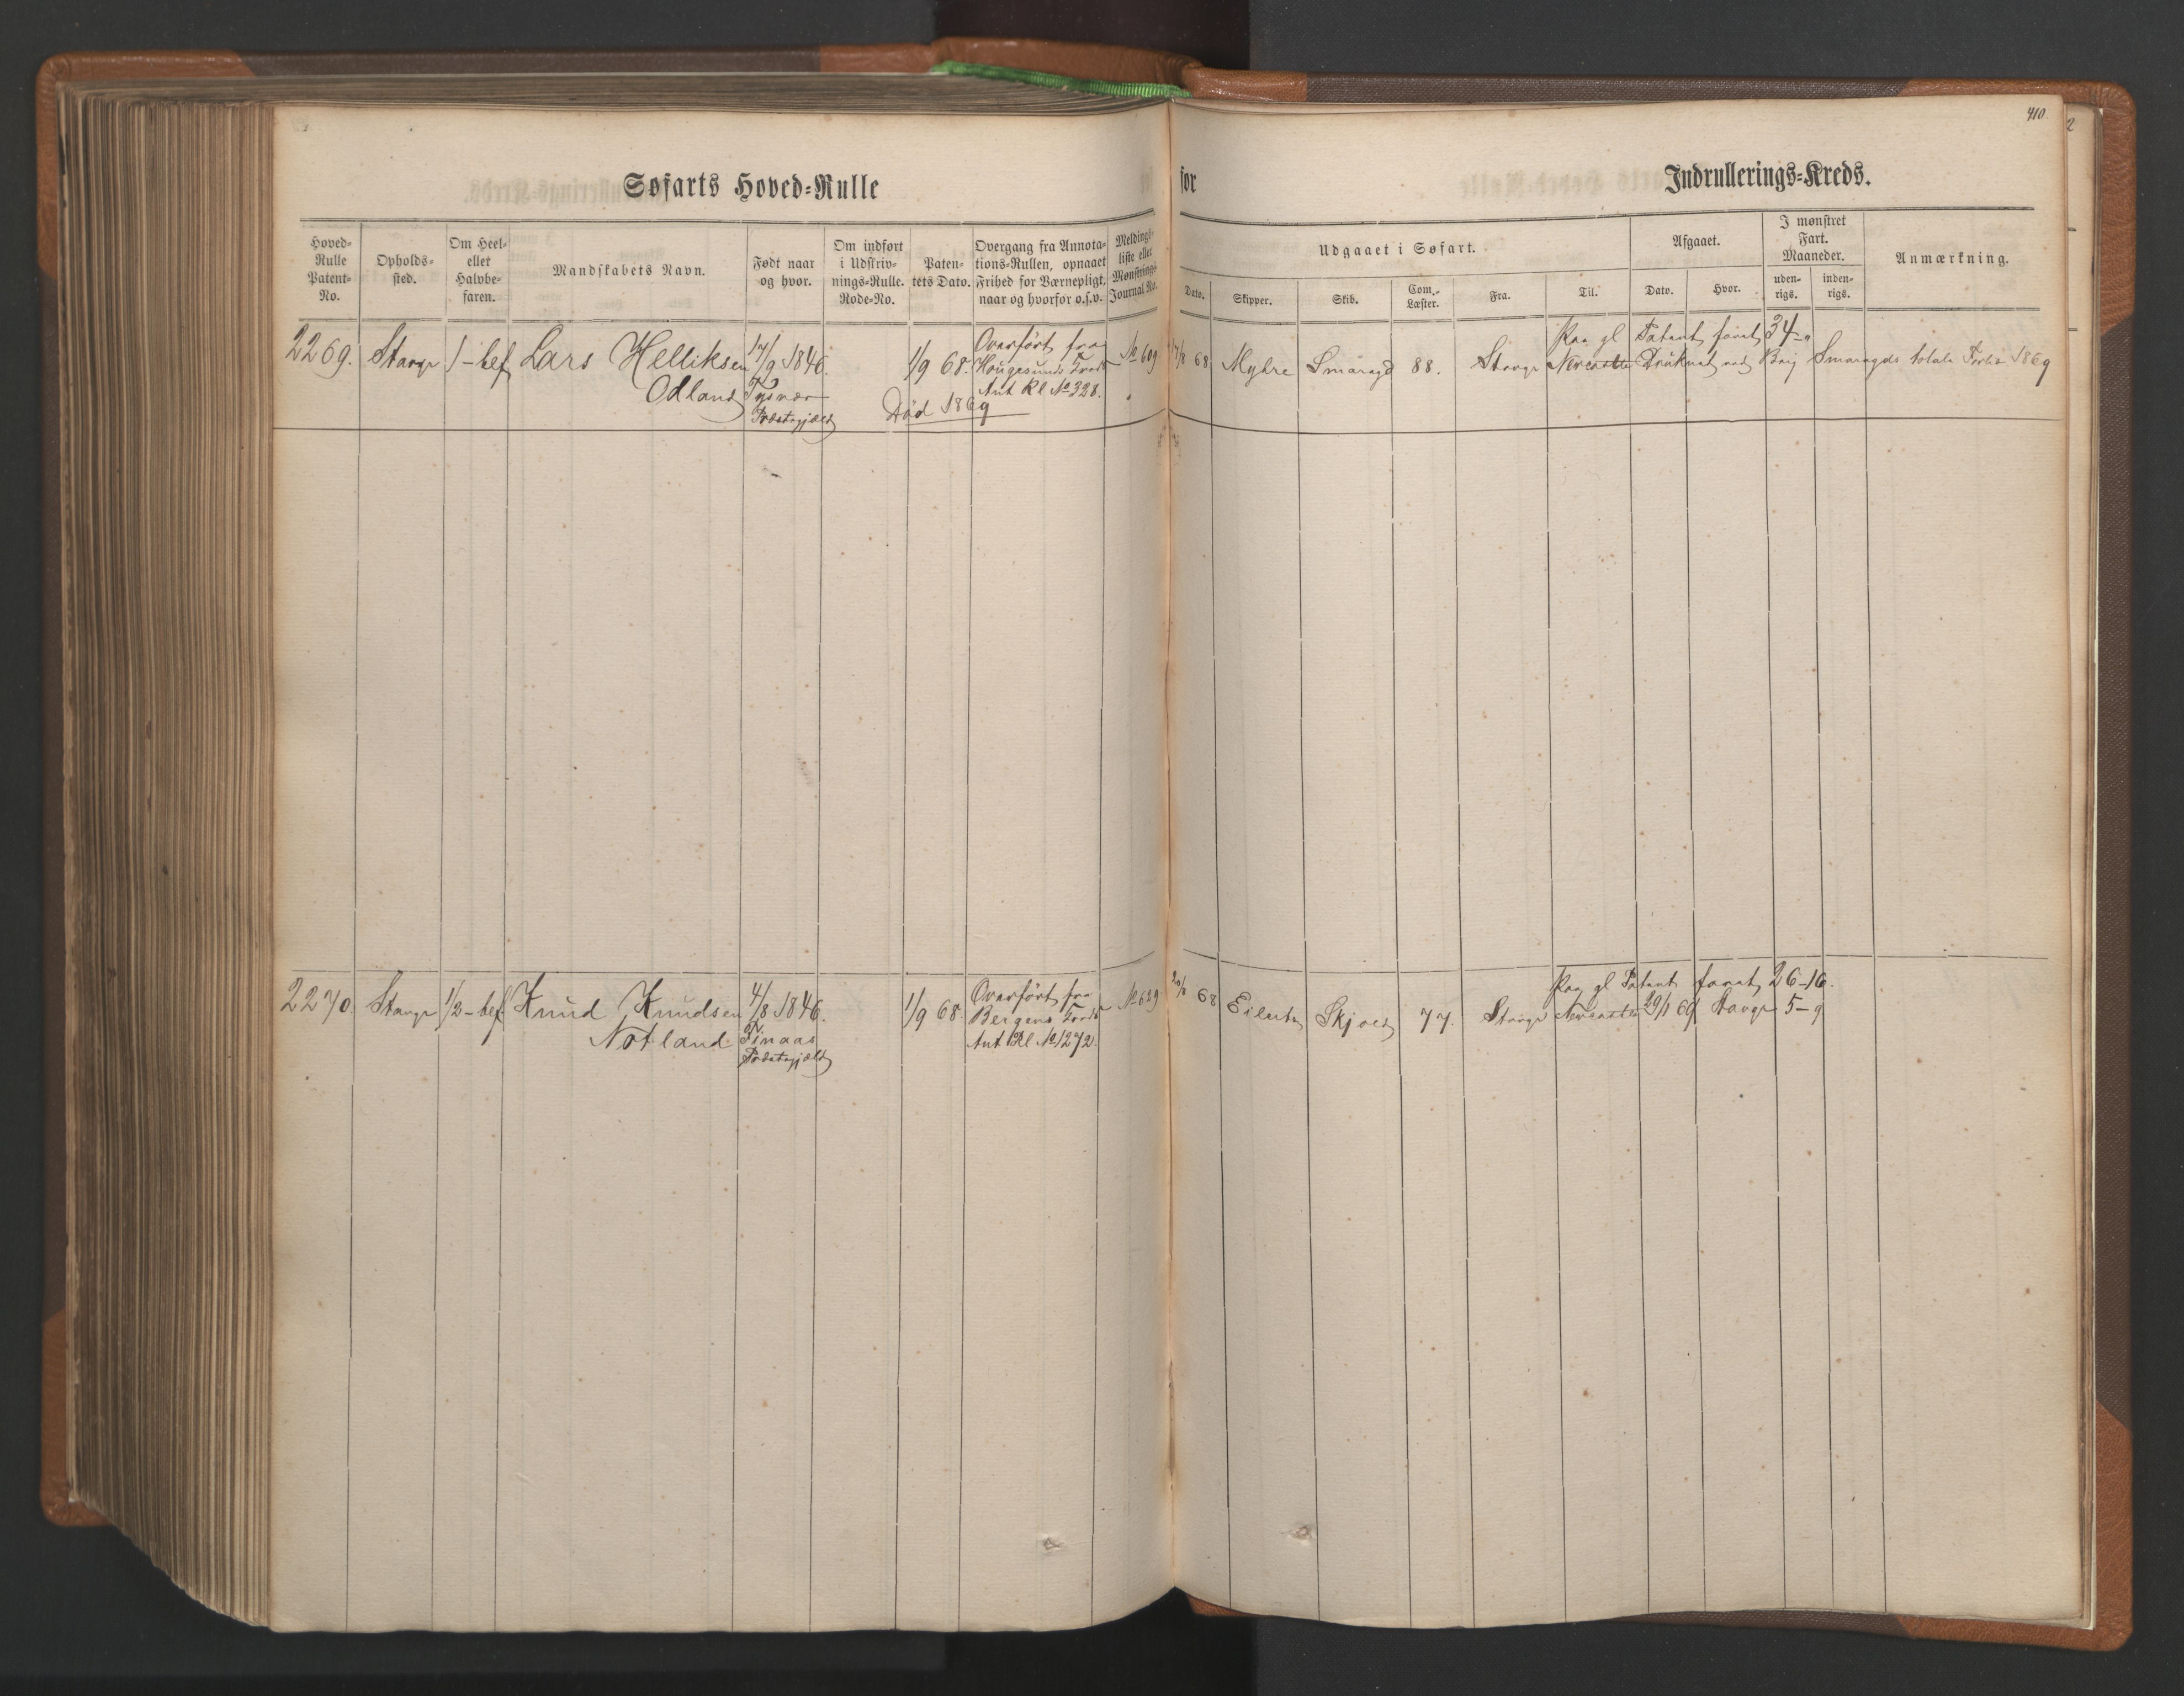 410
2
Søfarts Hoved=Rulle
for
Indrullerings=Kreds.
Hoved=
Rulle
Patent=
No.
Opholds=
sted.
Om Heel=
eller
Halvbe=
faren.
Mandskabets Navn.
Født naar
og hvor.
Om indført
i Udskriv=
nings=Rulle.
Rode=No.
Paten=
tets Dato.
Overgang fra Annota=
tions=Rullen, opnaaet
Frihed for Værnepligt,
naar og hvorfor o.s.v.
Meldings=
liste eller
Mønstrings=
Journal No.
Udgaaet i Søfart.
Dato.
Skipper.
Skib.
Com.=
Læster.
Fra.
Til.
Afgaaet.
Dato.
Hvor.
I mønstret
Fart.
Maaneder.
uden=
rigs.
inden=
rigs.
Anmærkning.
2269. Stavgr 1-bef Lars Helliksen
Odland
17/9 1846.
Tysvær
Præstegjæld
1/9 68.
Død 1869
Overført fra
Hougesunds Kreds
Ant Rl No 328.
No 609
7/8 68 Myhre Smaragd 88. Stavgr Newcastle
Paa gl Patent faret 34-"
Druknet ved Brig Smaragds totale Forlis 1869
2270. Stavgr 1/2-bef Knud Knudsen
Notland
4/8 1846.
Finaas
Præstegjæld
1/9 68.
Overført fra
Bergens Kreds
Ant Rl No 1272.
No 629
68 Skjold 77. Stavgr Newcastle
Paa gl Patent faret 26-16.
29/1 69 Stavgr 5-9